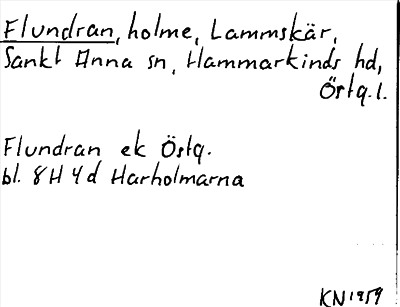 Flundran, holme, Lammskär,
Sankt Anna sn, Hammarkinds hd,
Östg. l.
Flundran ek Östg.
bl. 8H 4d Harholmarna
KN 1959